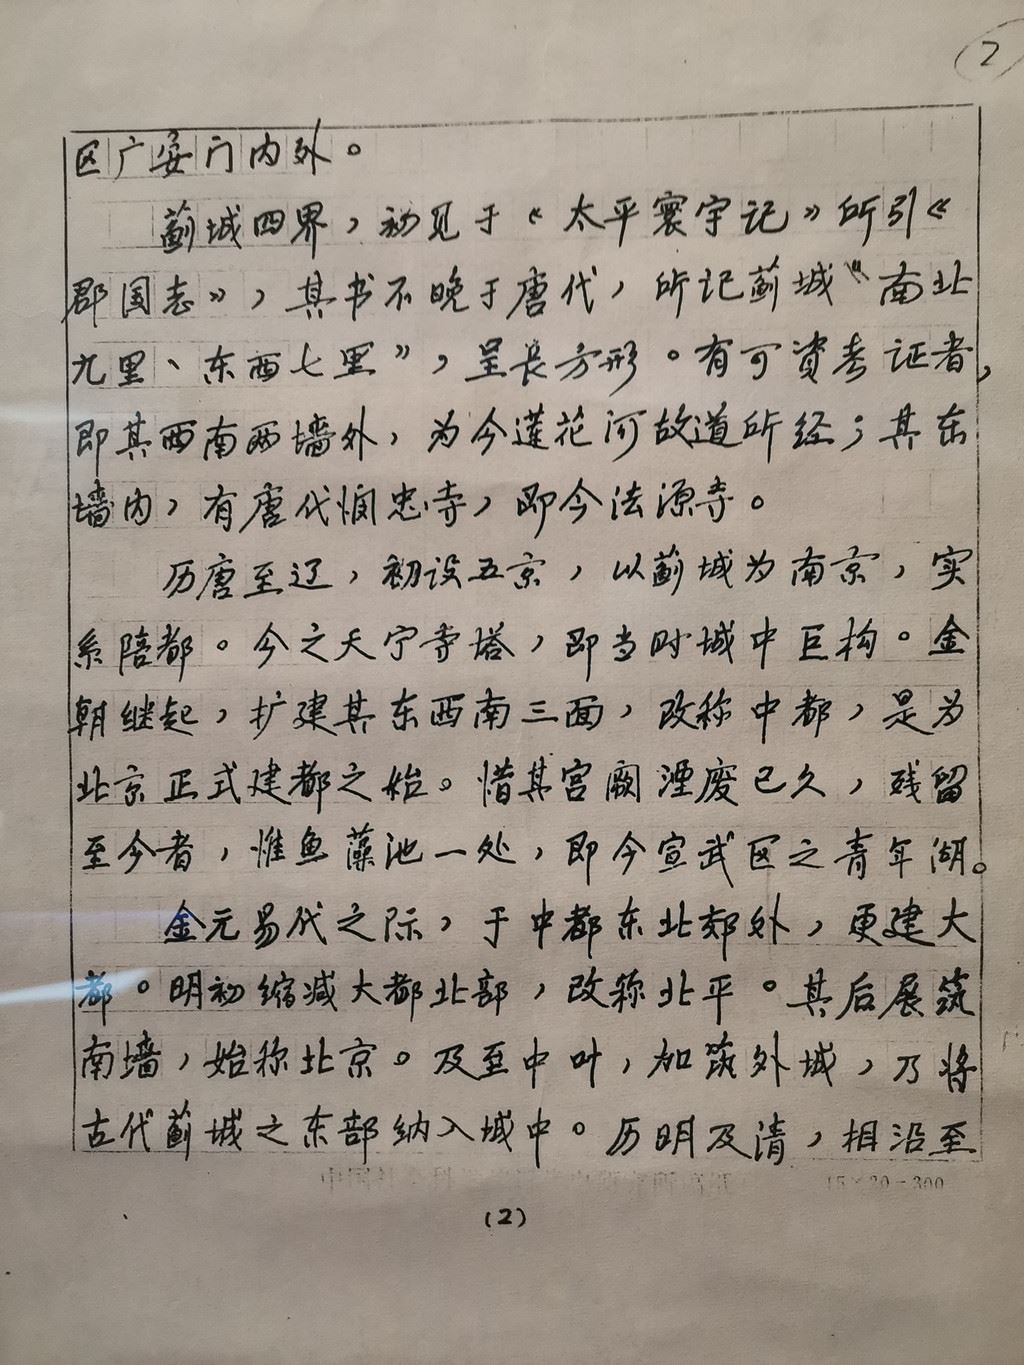 2
区广安门内外。
蓟城四界，初见于《太平寰宇记》所引《
郡国志》，其书不晚于唐代，所记蓟城“南北
九里、东西七里”，呈长方形。有可资考证者，
即其西南两墙外，为今莲花河故道所经；其东
墙内，有唐代悯忠寺，即今法源寺。
历唐至辽，初设五京，以蓟城为南京，实
系陪都。今之天宁寺塔，即当时城中巨构。金
朝继起，扩建其东西南三面，改称中都，是为
北京正式建都之始。惜其宫阙湮废已久，残留
至今者，惟鱼藻池一处，即今宣武区之青年湖。
金元易代之际，于中都东北郊外，更建大
都。明初缩减大都北部，改称北平。其后展筑
南墙，始称北京。及至中叶，加筑外城，乃将
古代蓟城之东部纳入城中。历明及清，相沿至
15×20=300
(2)